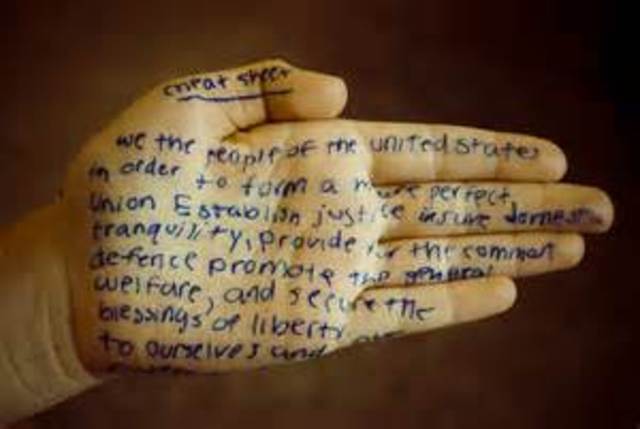 cheat sheet
we the people of the united states
in order to form a more perfect
Union Establish justice insure domestic
tranquility, provide for the common
defence promote the general
welfare, and secure the
blessings of liberty
to ourselves and